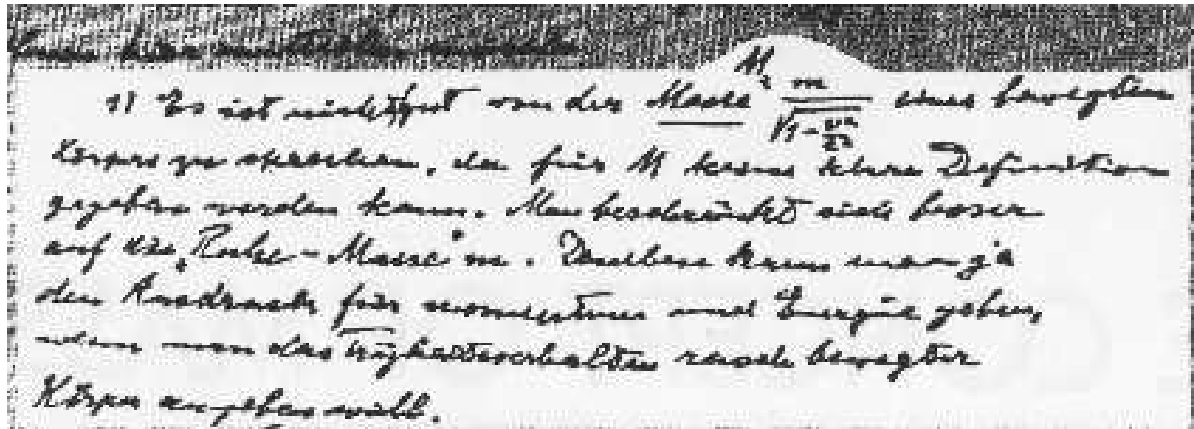 1) Es ist nicht gut von der Masse M = m/√(1 - v²/c²) eines bewegten
Körpers zu sprechen, da für M keine klare Definition
gegeben werden kann. Man beschränkt sich besser
auf die „Ruhe-Masse" m. Daneben kann man ja
den Ausdruck für momentum und Energie geben,
wenn man das Trägheitsverhalten rasch bewegter
Körper angeben will.